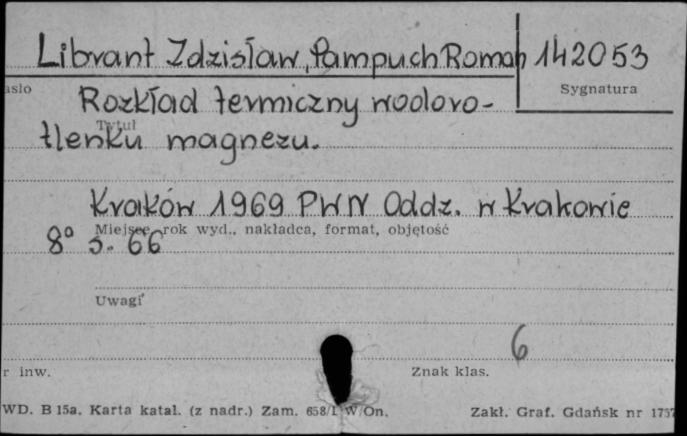 Librant Zdzisław, Pampuch Roman 142053
asło Sygnatura
Rozkład termiczny wodoro-
Tytuł
tlenku magnezu.
Kraków 1969 PWN Oddz. w Krakowie
Miejsce, rok wyd., nakładca, format, objętość
8° s. 66
Uwagi
6
r inw. Znak klas.
WD. B 15a. Karta katal. (z nadr.) Zam. 658/I W/On. Zakł. Graf. Gdańsk nr 1757